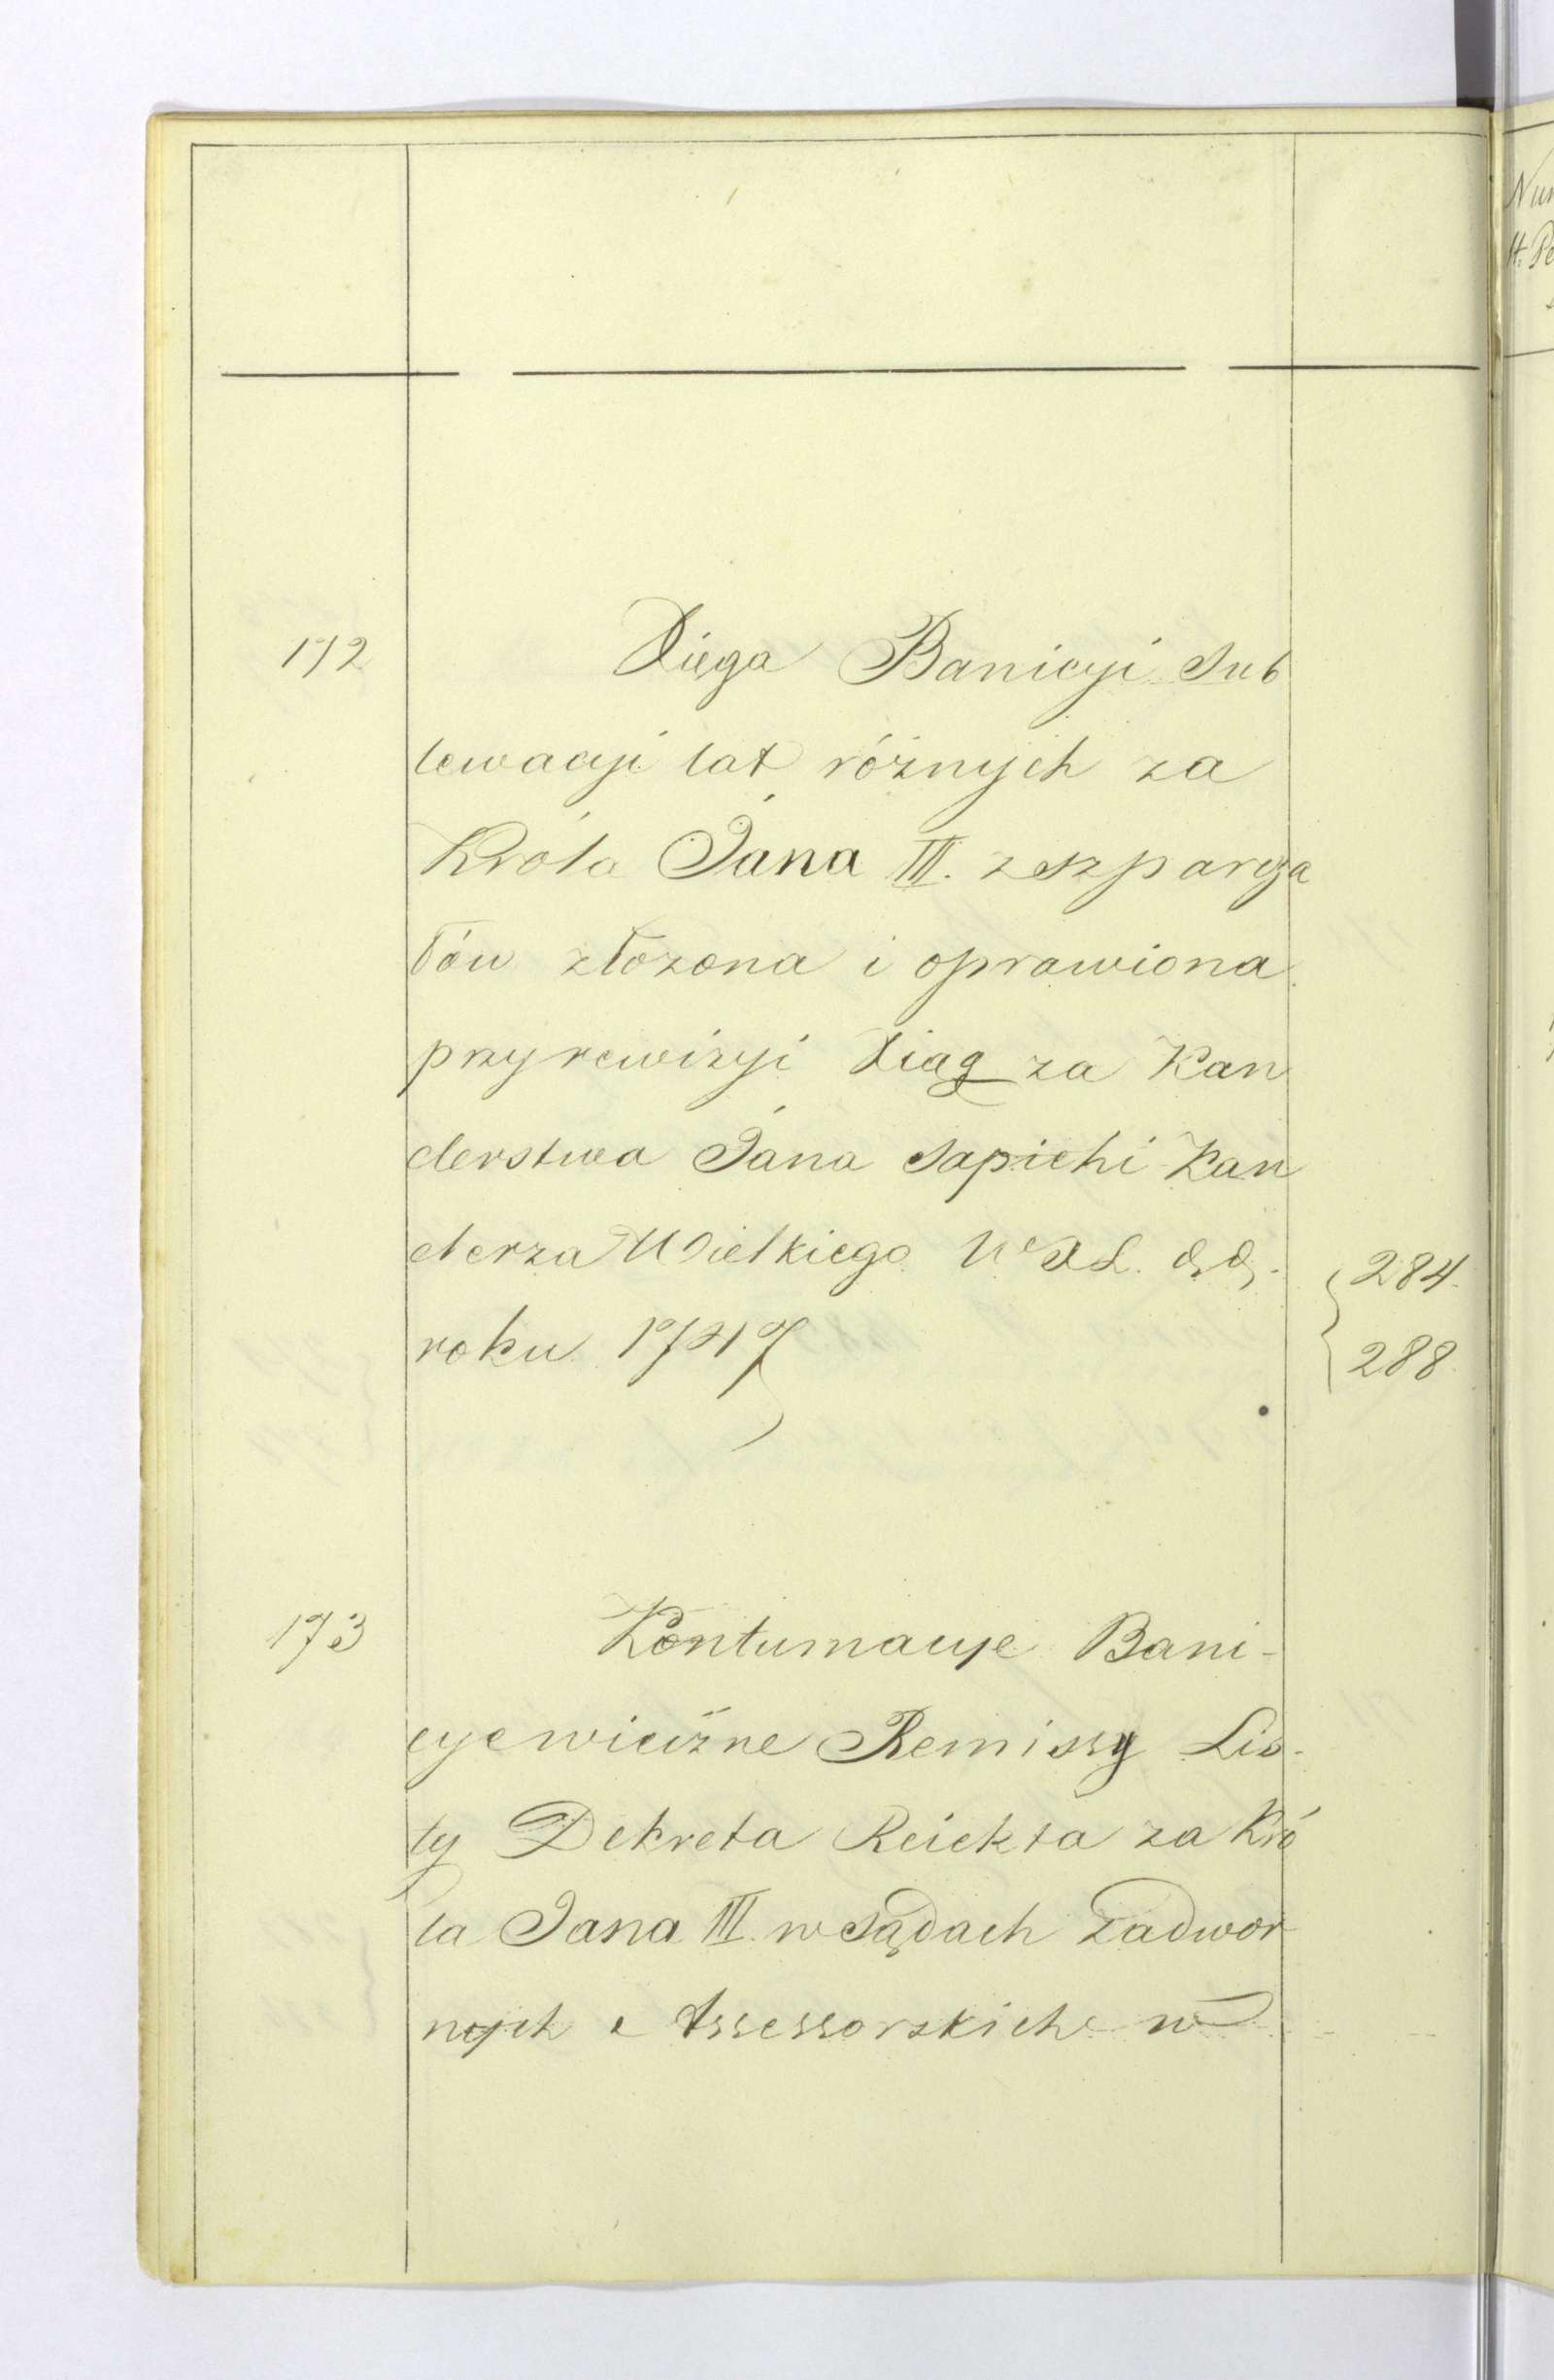 172 Xięga Banicyi Sub
lewacyi lat różnych za
Króla Jana III. z szparga
łów złozona i oprawiona
przy rewizyi Xiąg za Kan
clerstwa Jana Sapiehi Kan
clerza Wielkiego W X L.
roku 1747
284.
288.
173 Kontumacye Bani-
cye wieczne Remissy Lis-
ty Dekreta Reiekta za Kró
la Jana III. w Sądach Zadwor
nych i Assessorskich w